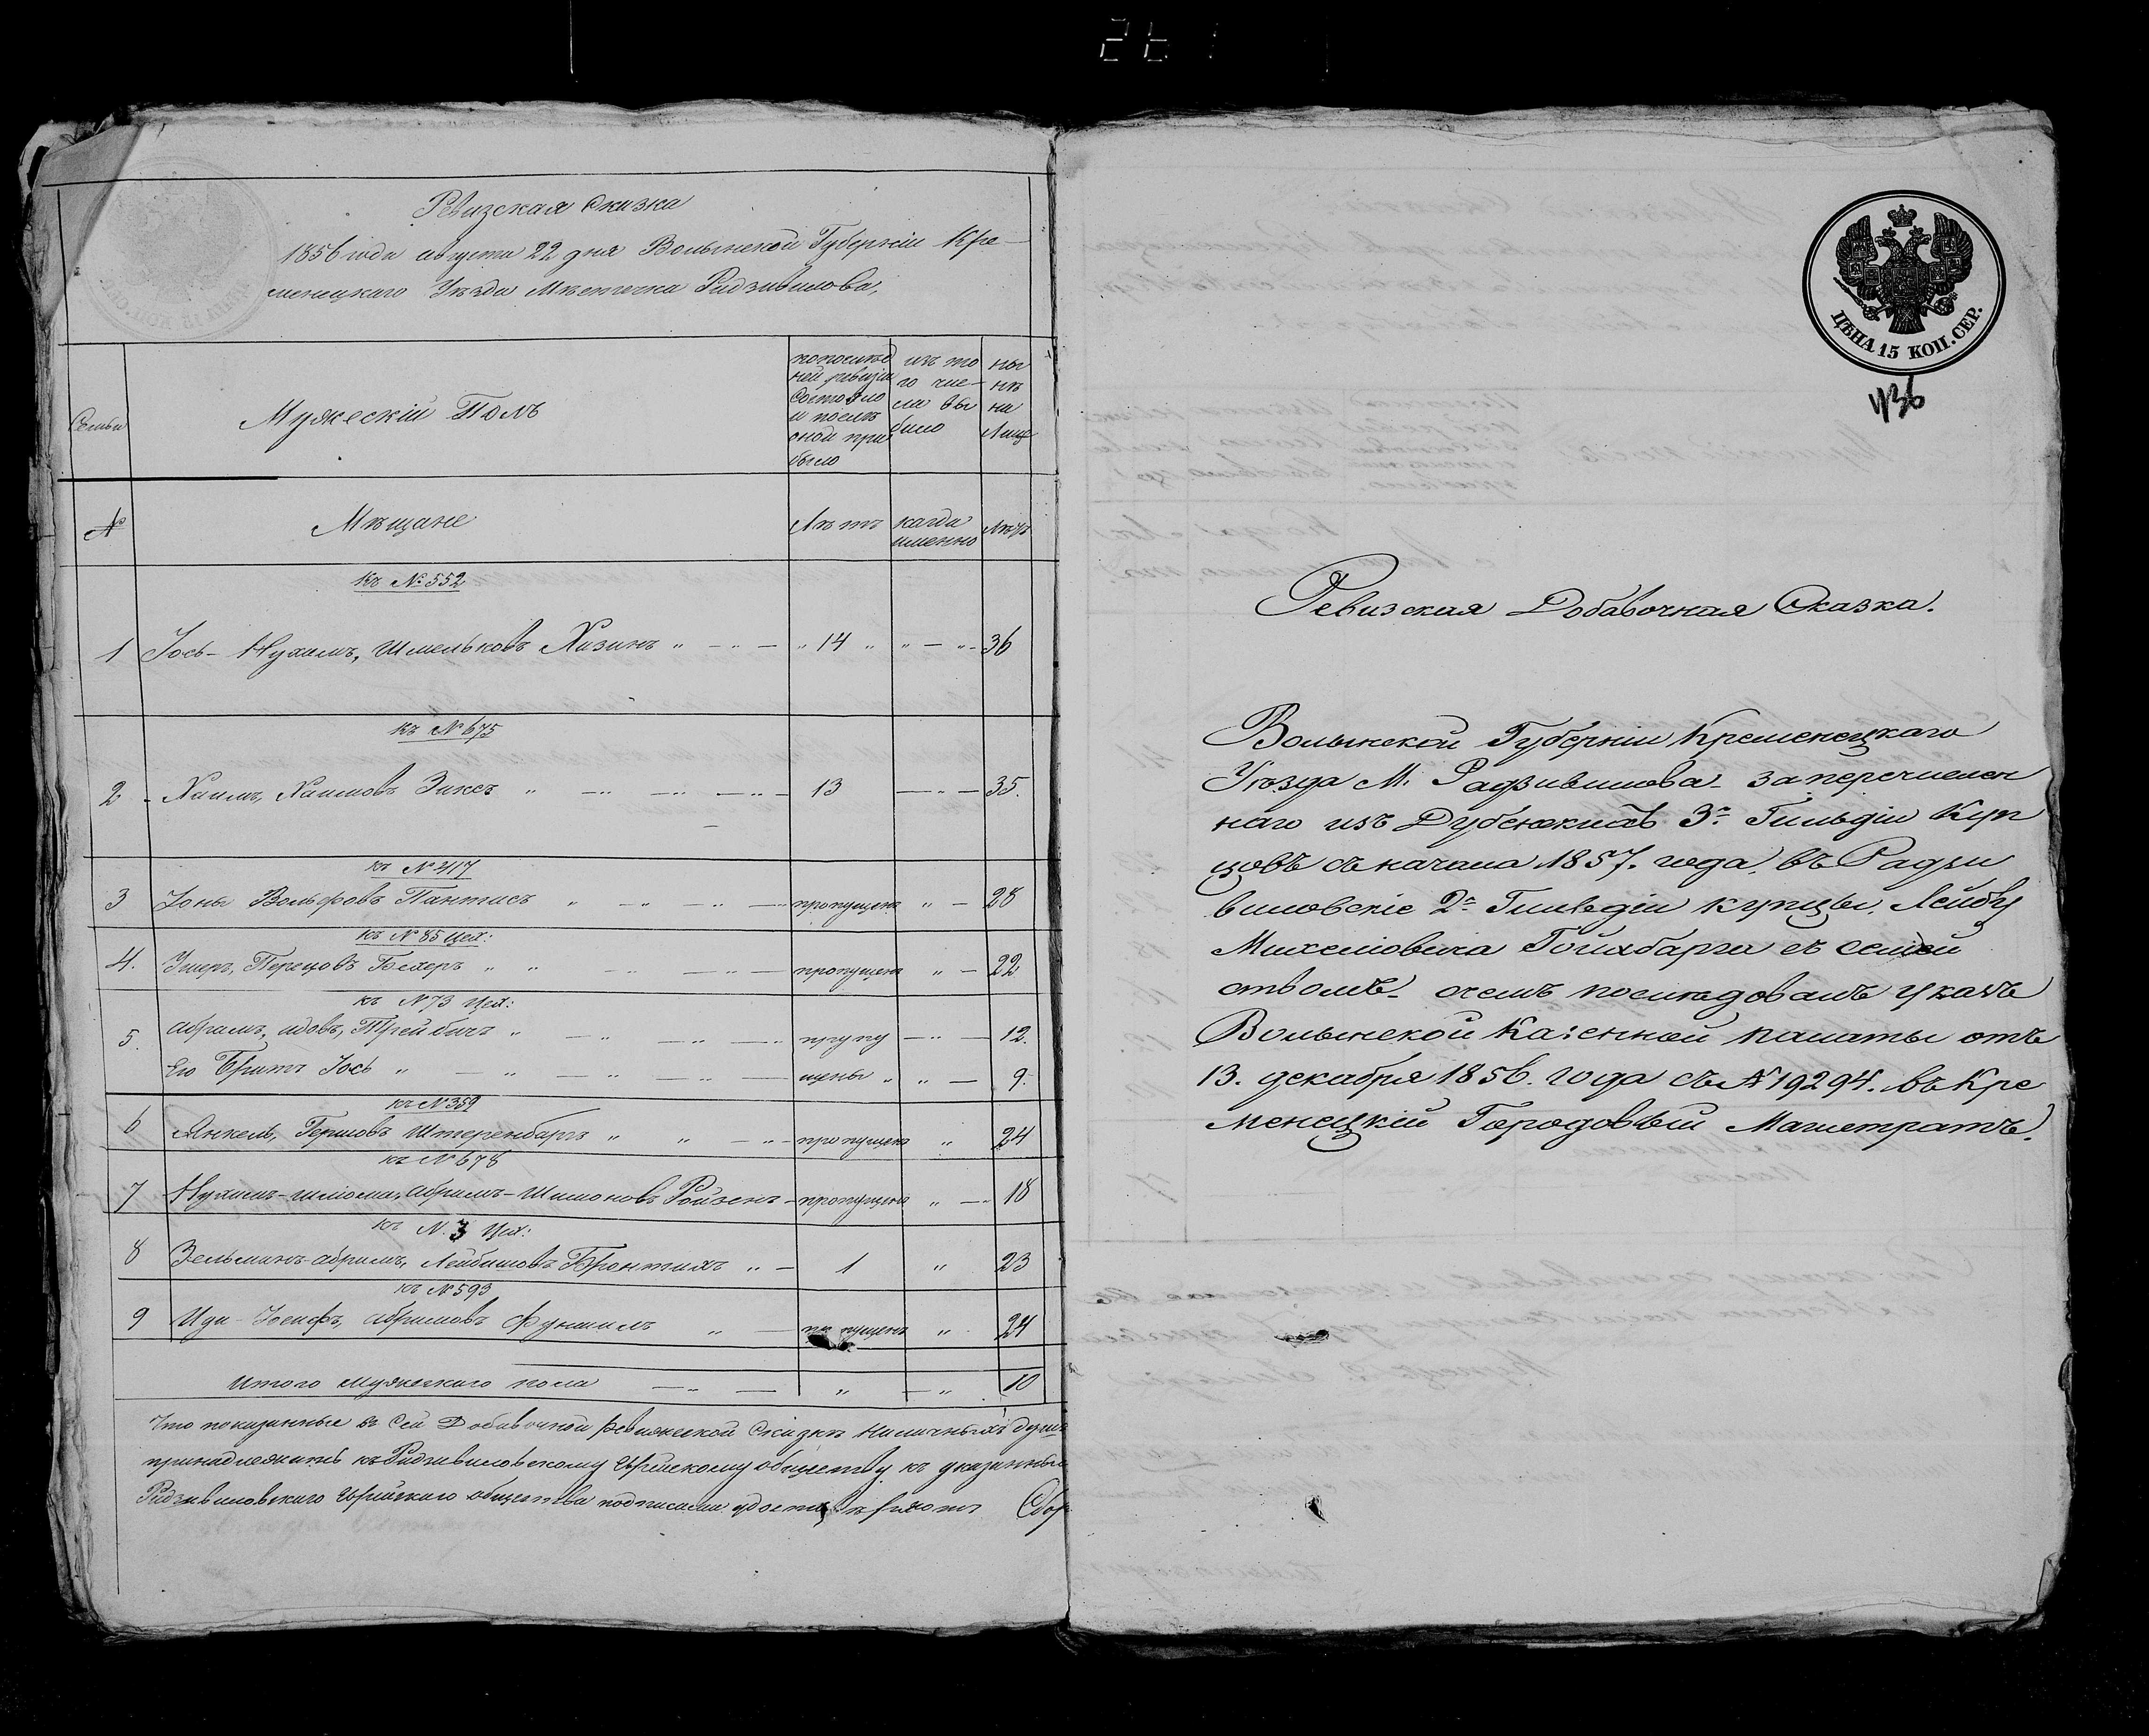 Ревизская Сказка
1856 года августа 22 дня Волынской Губерніи Кре-
менецкаго Уѣзда Мѣстечка Радзивилова,
Семьи
Мужескій Полъ
по послѣд
ней ревизіи
состояло
и послѣ
оной при
было
изъ то
го чис-
ла вы
было
ны
нѣ
на
Лицо
№
Мѣщане
Лѣтъ
когда
именно
Лѣтъ
къ № 552
1 Іось-Нухимъ, Шмельковъ Хазинъ „ — „ — „ 14 „ „ — „ - 36
къ № 675
2 - Хаимъ, Хаимовъ Зиксъ „ — „ — „ — „ - 13 — „ — 35.
къ № 417
3 Іоны Вольфовъ Пантисъ „ — „ — „ — пропущенъ „ — 28
къ № 85 цех:
4. Ушеръ, Перецовъ Бехеръ „ „ — „ — пропущенъ „ — 22
къ № 73 Цех:
5. Абрамъ, Трейбичъ „ — „ — „ — „ пропу — „ — 12.
Его Братъ Іось „ — „ — „ — щены „ „ — 9.
къ № 359
6 Янкель, Гершовъ Штеренбаргъ „ „ — „ - пропущенъ „ 24
къ № 678
7 Нухимъ-Шліома, Абрамъ-Шимоновъ Ройзенъ - пропущенъ „ — 18
къ № 3 Цех:
8 Зельманъ-Абрамъ, Лейбишовъ „ — 1 „ 23
къ № 593
9 Іосифъ, Абрамовъ „ — пропущенъ „ 24
Итого мужескаго пола — „ — „ — „ 10
Что показанные въ сей Добавочной ревизской Сказкѣ наличныхъ душъ
принадлежитъ къ Радзивиловскому Еврейскому обществу
Радзивиловскаго Еврейскаго общества подписами Сбор
ЦѢНА 15 КОП. СЕР.
436
Ревизская Добавочная Сказка.
Волынской Губерніи Кременецкаго
Уѣзда М. Радзивилова - за перечислен
наго изъ Дубенскихъ 3й Гильдіи Куп
цовъ съ начала 1857. года, въ Радзи
виловскіе 2й Гильдіи купцы, Лейбу
Михеліовича съ семей
ствомъ - о чемъ послѣдовалъ указъ
Волынской Казенной палаты отъ
13. декабря 1856. года съ № 19294. въ Кре
менецкій Городовый Магистратъ.